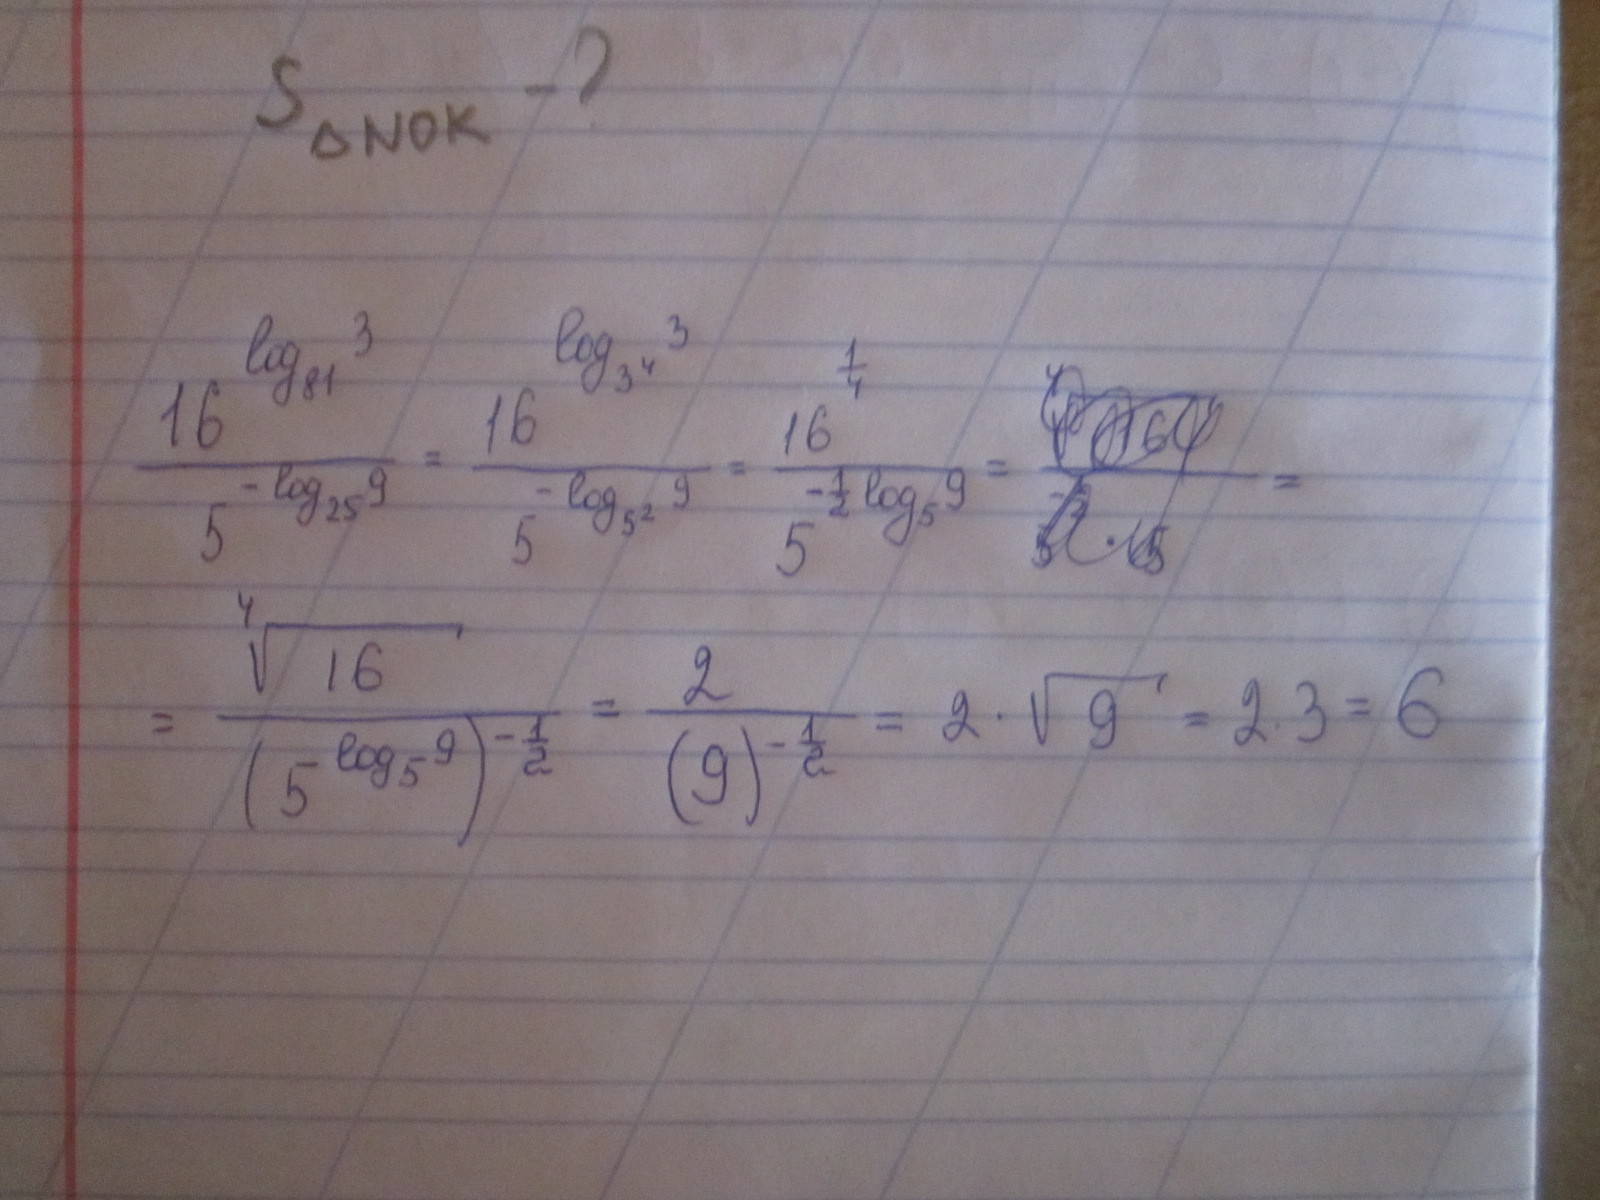 S△NOK - ?
16^(log₈₁ 3) / 5^(-log₂₅ 9) = 16^(log_(3⁴) 3) / 5^(-log_(5²) 9) = 16^(1/4) / 5^(-1/2 log₅ 9) = =
= ⁴√16 / (5^(log₅ 9))^(-1/2) = 2 / (9)^(-1/2) = 2 · √9 = 2 · 3 = 6